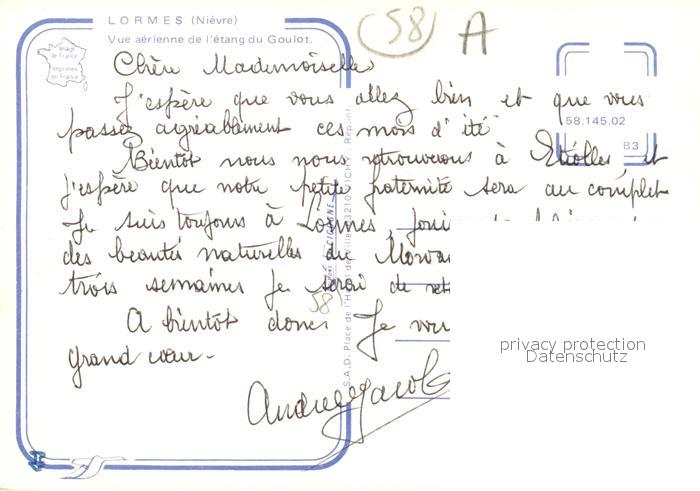 LORMES (Nièvre)
Vue aérienne de l'étang du Goulot.
58
A
Image
de France
Imprimée
en France
Chère Mademoiselle
J'espère que vous allez bien et que vous
passez agréablement ces mois d'été
58.145.02
B3
Bientôt nous nous retrouverons à Etiolles, et
j'espère que notre petite fraternité sera au complet
Je suis toujours à Lormes,
des beautés naturelles du Morva
trois semaines je serai de
58
A bientôt donc. Je
grand cœur.
Andrée Jacob
S.A.D. Place de l'Hôtel de Ville
CIGOGNE
privacy protection
Datenschutz